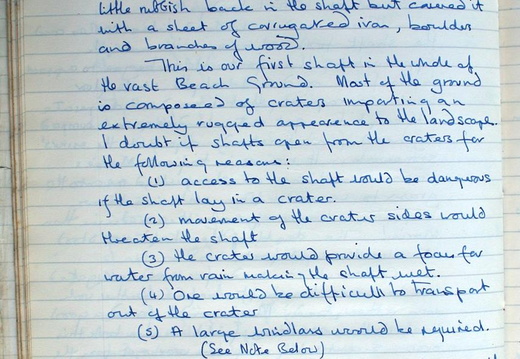 little rubbish back in the shaft but covered it
with a sheet of corrugated iron, boulders
and branches of wood.
This is our first shaft in the whole of
the vast Beach Ground. Most of the ground
is composed of craters imparting an
extremely rugged appearence to the landscape.
I doubt if shafts open from the craters for
the following reasons:
(1) access to the shaft would be dangerous
if the shaft lay in a crater.
(2) movement of the crater sides would
threaten the shaft
(3) the crater would provide a focus for
water from rain making the shaft wet.
(4) One would be difficult to transport
out of the crater
(5) A large windlass would be required.
(See Note Below)